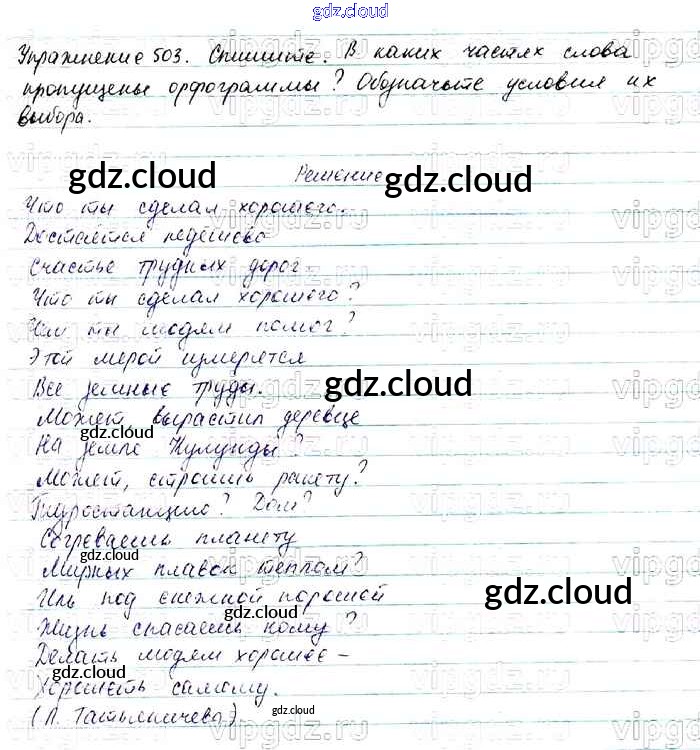 gdz.cloud
Упражнение 503. Спишите. В каких частях слова
пропущены орфограммы? Обозначьте условия их
выбора.
gdz.cloud Решение gdz.cloud
Что ты сделал хорошего.
Достаётся недёшево
Счастье трудных дорог.
Что ты сделал хорошего?
Чем ты людям помог?
Этой мерой измерятся
Все земные труды. gdz.cloud
Может вырастил деревце
gdz.cloud
На земле Кулунды?
Может, строишь ракету?
Гидростанцию? Дом?
Согреваешь планету
gdz.cloud
Мирных плавок теплом?
Иль под снежной порошей gdz.cloud
gdz.cloud
Жизнь спасаешь кому?
Делать людям хорошее –
Хорошеть самому.
(Л. Татьяничева) gdz.cloud